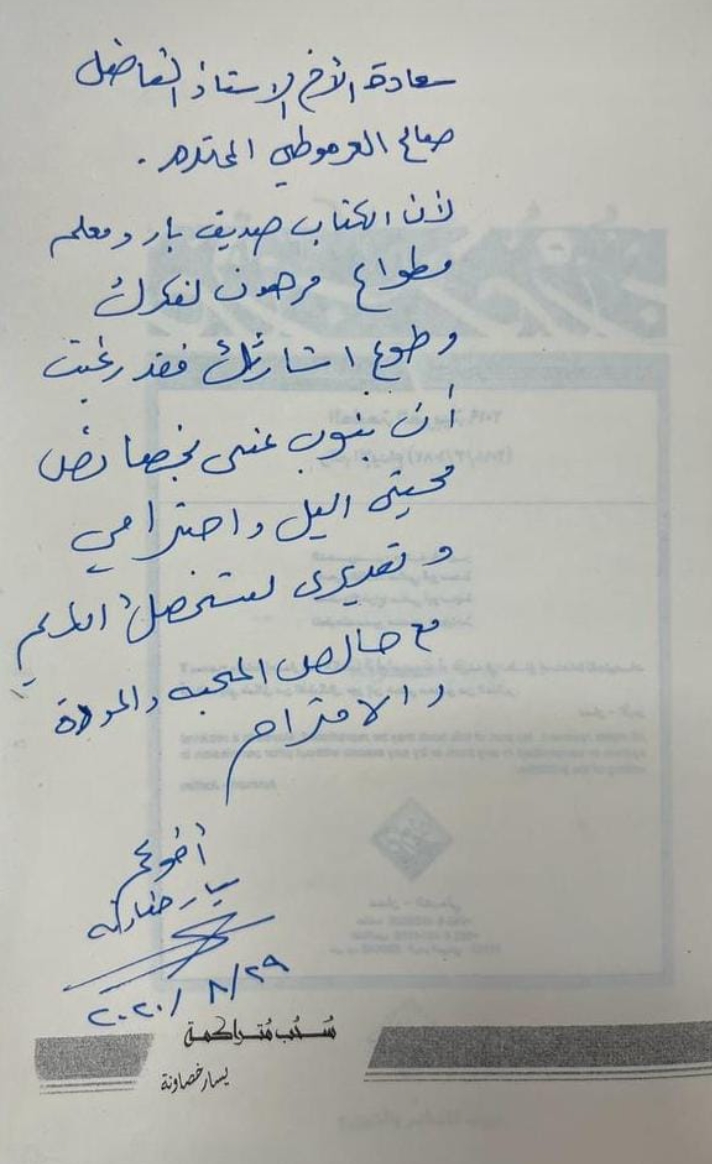 سعادة الأخ الاستاذ الفاضل
صالح العرموطي المحترم .
لأن الكتاب صديق بار ومعلم
مطواع مرهون لفكرك
وطوع اشارتك فقد رغبت
أن ينوب عني بخصائص
محبتي اليك واحترامي
وتقديري لشخصك الكريم
مع خالص المحبه والمودة
والاحترام
أخوكم
يسار خصاونه
٢٠٢٠/٨/٢٩
سُحُب مُتراكمة
يسار خصاونة